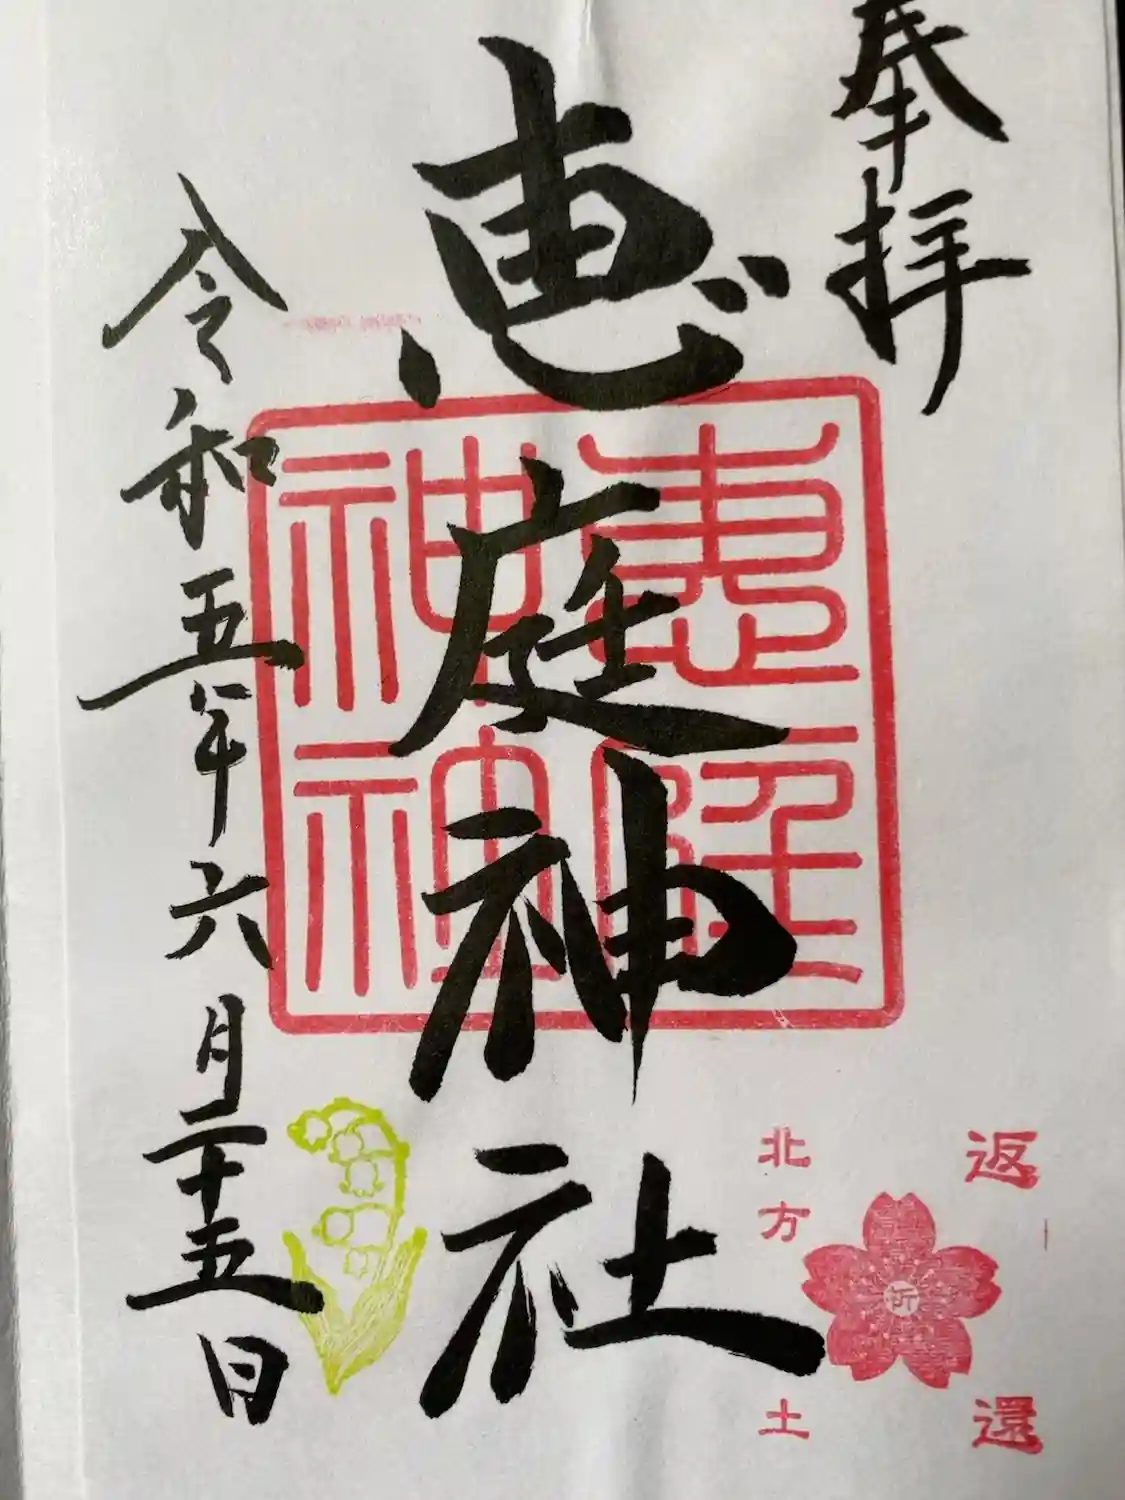 奉拝
恵庭神社
令和五年六月二十五日
恵庭
神社
返還
祈
北方土